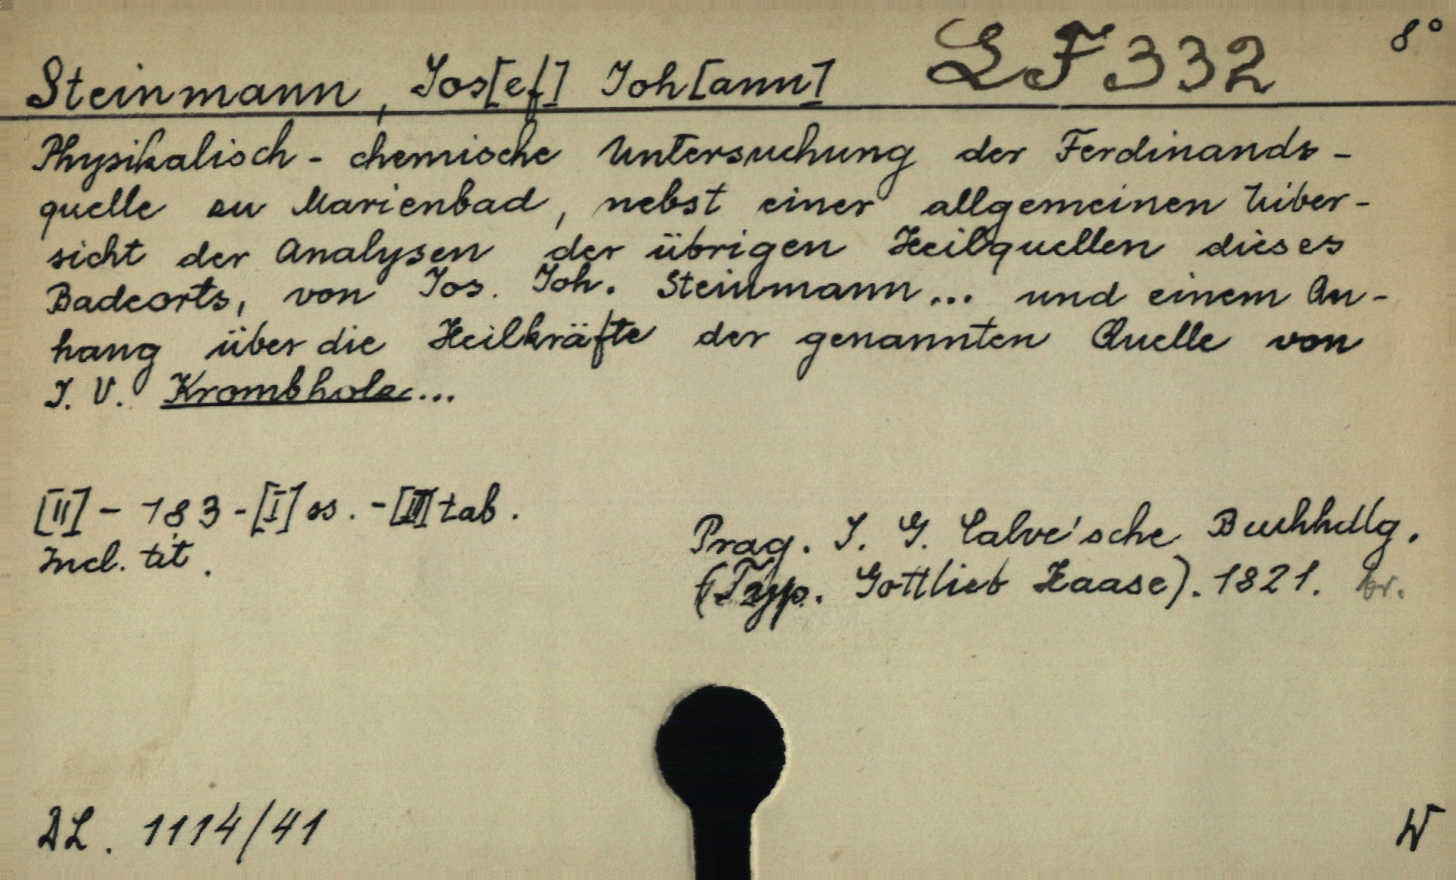 8°
LF 332
Steinmann, Jos[ef] Joh[ann]
Physikalisch - chemische Untersuchung der Ferdinands-
quelle zu Marienbad, nebst einer allgemeinen Uiber-
sicht der Analysen der übrigen Heilquellen dieses
Badeorts, von Jos. Joh. Steinmann... und einem An-
hang über die Heilkräfte der genannten Quelle von
J. V. Krombholz...
[II] - 183 - [I] ss. - [III] tab.
Incl. tit.
Prag. J. G. Calve'sche Buchhdlg.
(Typ. Gottlieb Haase). 1821. br.
DL. 1114/41
W